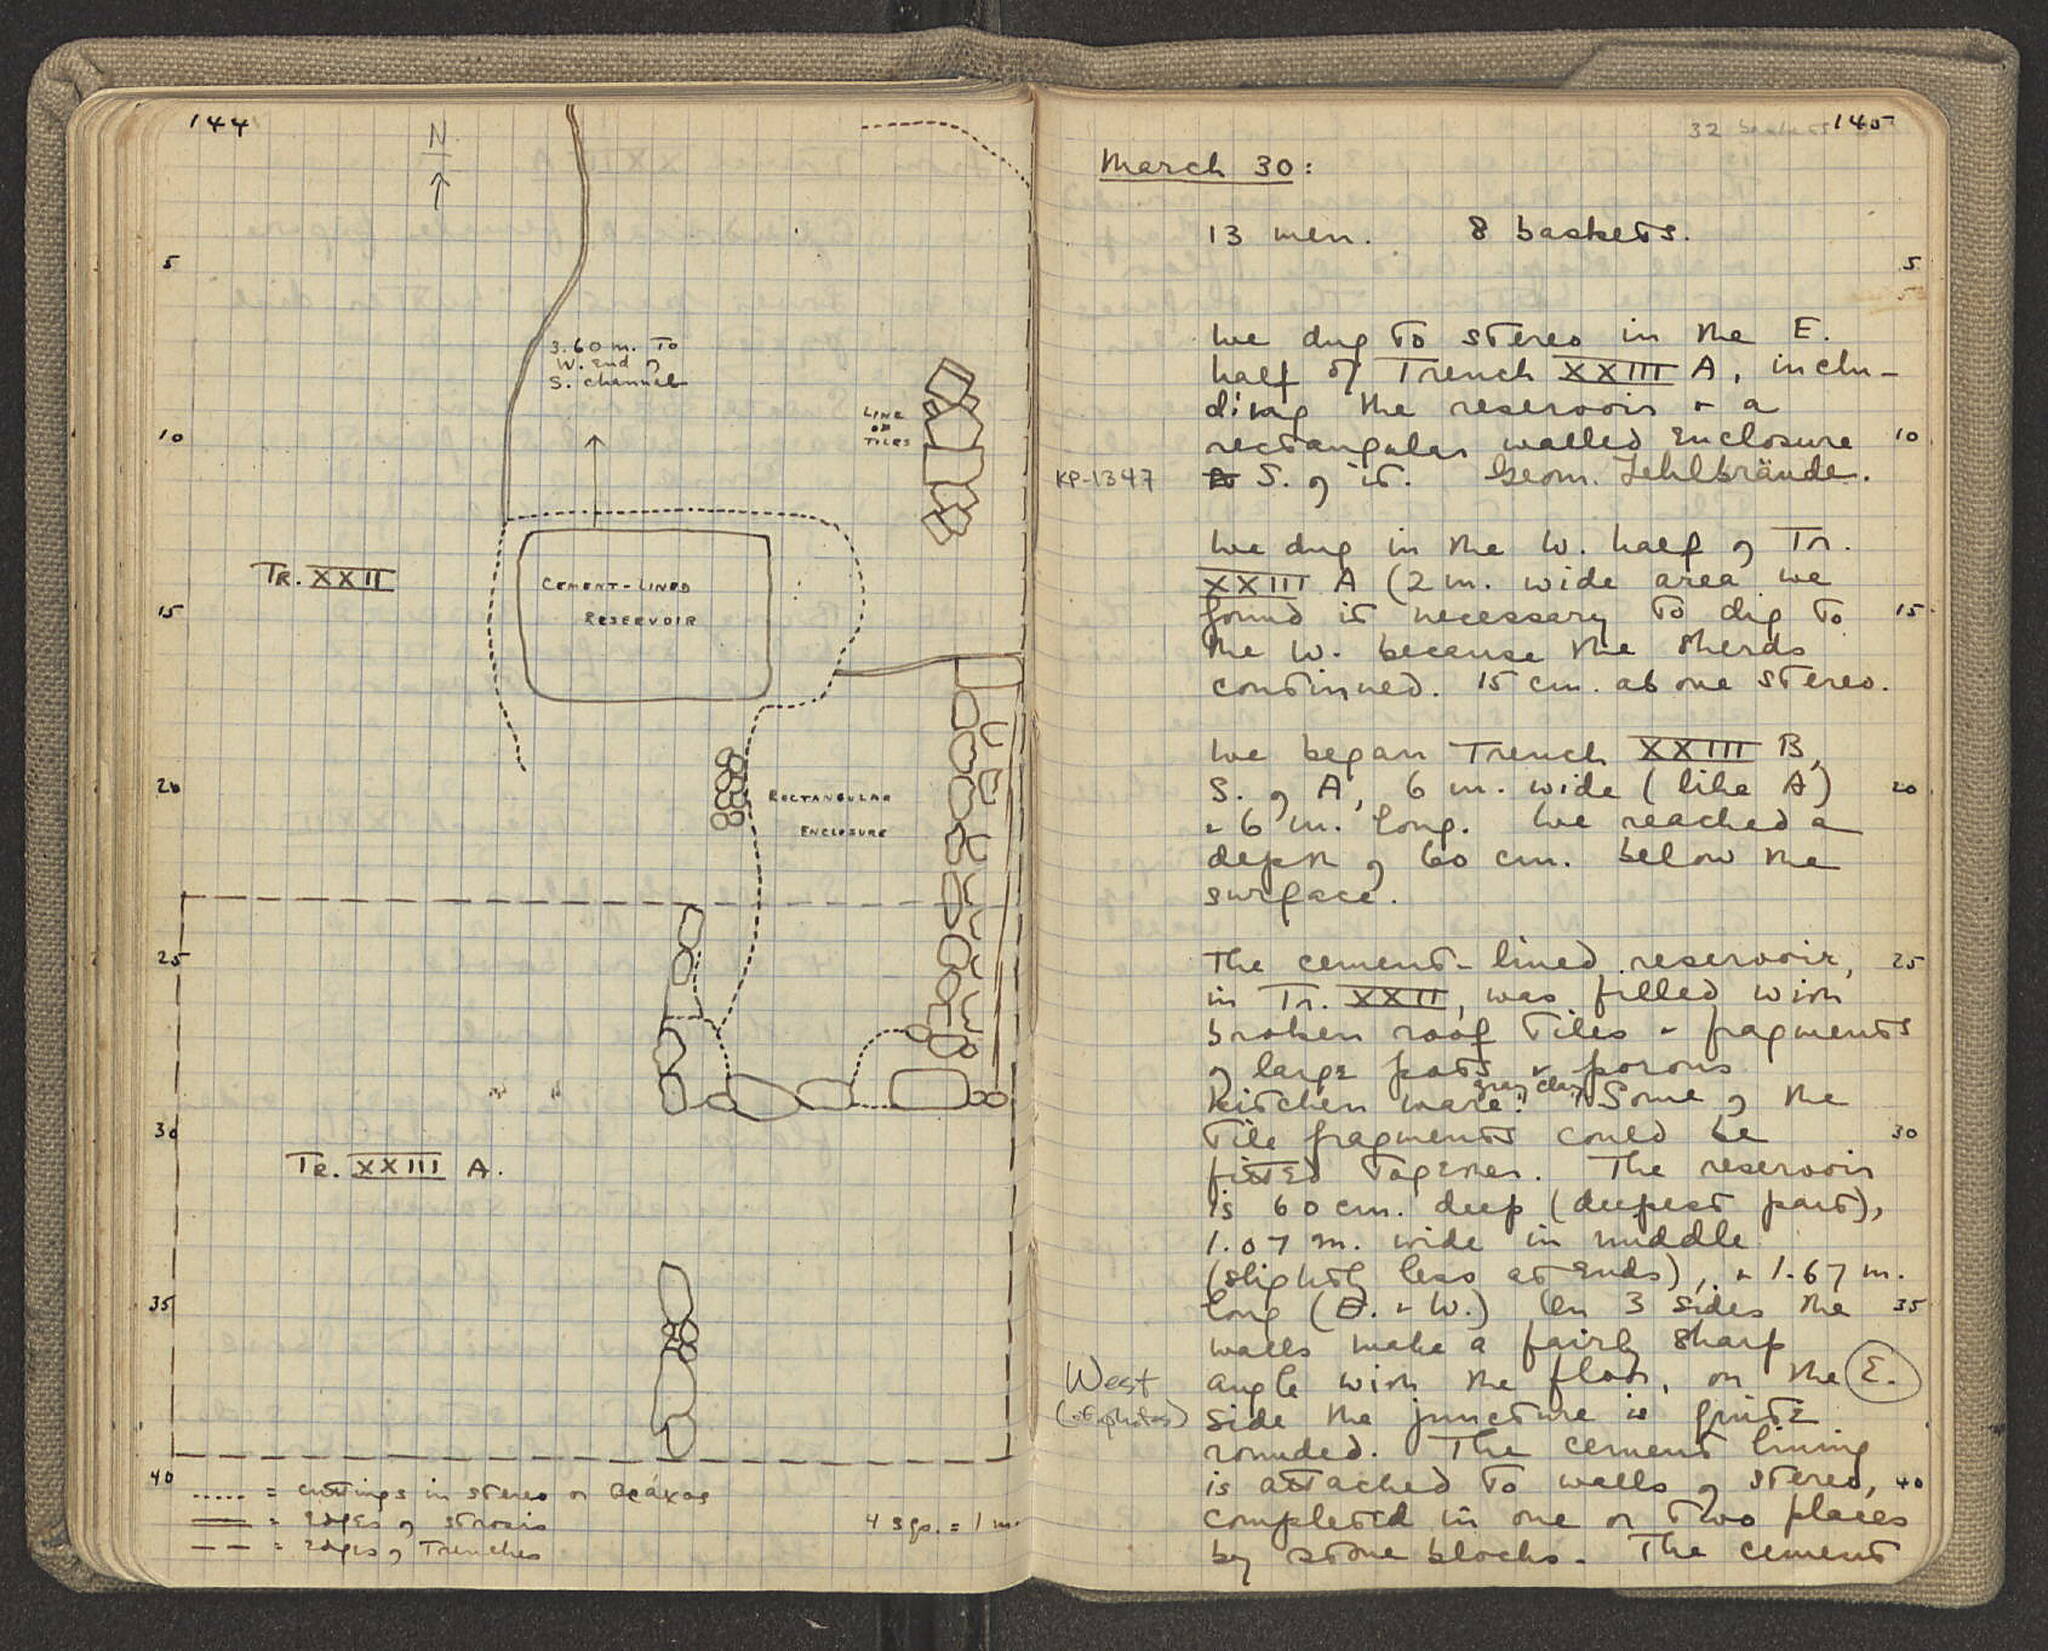 144
N
5
3.60 m. To
W. end of
S. channel
10
LINE
OF
TILES
TR. XXII
CEMENT-LINED
RESERVOIR
15
20
RECTANGULAR
ENCLOSURE
25
30
TR. XXIII A.
35
40
..... = cuttings in stereo or βράχος
= edges of strosis
4 sqs. = 1 m.
-- = edges of Trenches
32 baskets 145
March 30:
13 men. 8 baskets.
5
5
We dug to stereo in the E.
half of Trench XXIII A, inclu-
ding the reservoir + a
rectangular walled enclosure 10
KP-1347 S. of it. Geom. Fehlbrände.
We dug in the W. half of Tr.
XXIII A (2 m. wide area we
found it necessary to dig to 15
the W. because the sherds
continued. 15 cm. above stereo.
We began Trench XXIII B,
S. of A, 6 m. wide (like A) 20
+ 6 m. long. We reached a
depth of 60 cm. below the
surface.
The cement-lined reservoir, 25
in Tr. XXII, was filled with
broken roof tiles + fragments
of large pots + porous
gray clay
kitchen ware. Some of the
tile fragments could be 30
fitted together. The reservoir
is 60 cm. deep (deepest part),
1.07 m. wide in middle
(slightly less at ends), + 1.67 m.
long (E. + W.) On 3 sides the 35
walls make a fairly sharp
West angle with the floor, on the E.
(cf. photos) side the juncture is quite
rounded. The cement lining
is attached to walls of stereo, 40
completed in one or two places
by stone blocks. The cement